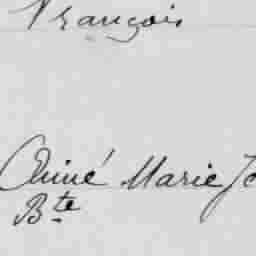 François
Aimé Marie Je
Bte